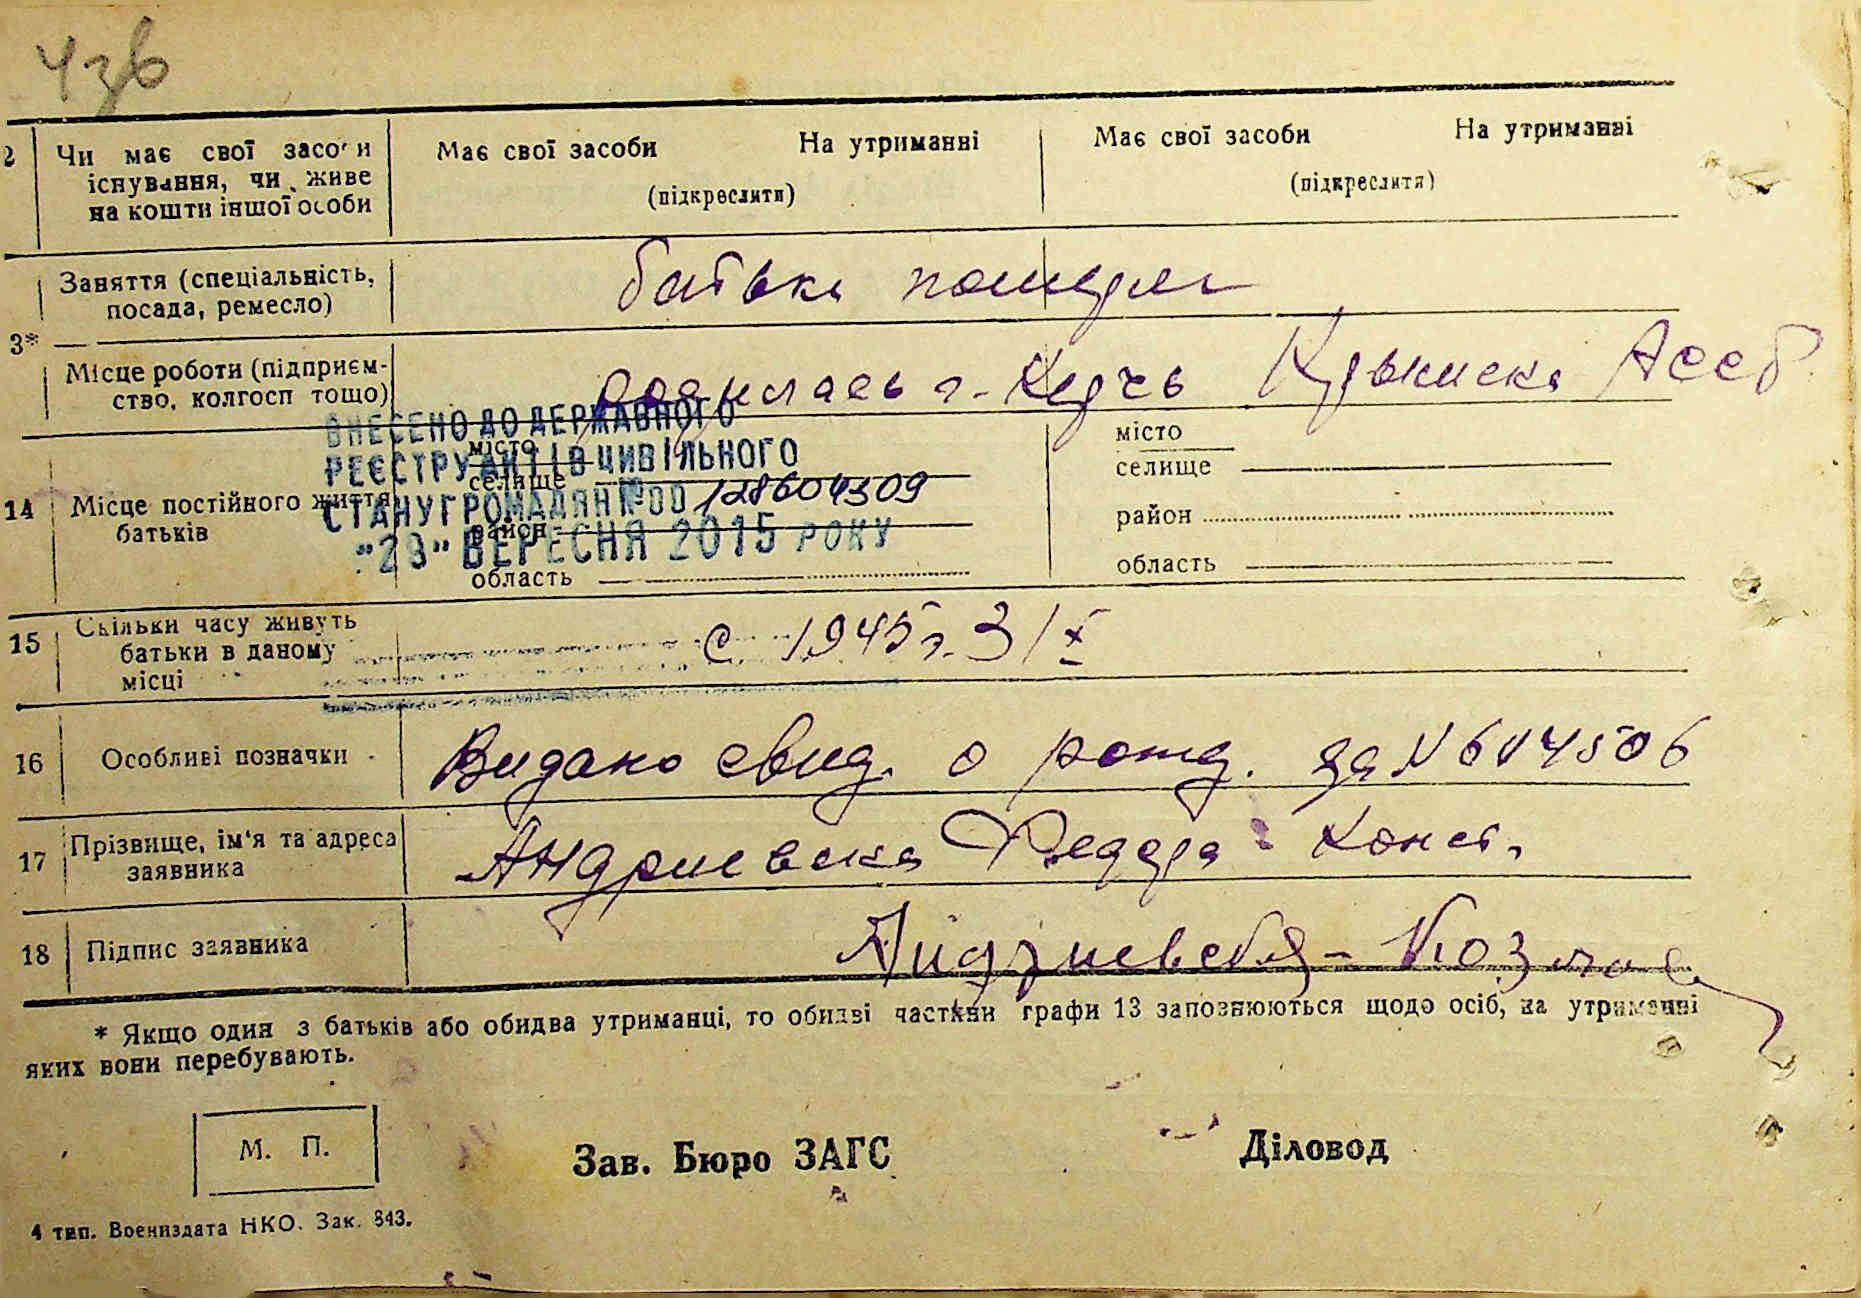 436
2 Чи має свої засоби Має свої засоби На утриманні Має свої засоби На утриманні
існування, чи живе (підкреслити) (підкреслитя)
на кошти іншої особи
Заняття (спеціальність, батьки померли
посада, ремесло)
3*
Місце роботи (підприєм- родилась г. Керчь Крымская АССР
ство, колгосп тощо)
ВНЕСЕНО ДО ДЕРЖАВНОГО
РЕЄСТРУ АКТІВ ЦИВІЛЬНОГО
СТАНУ ГРОМАДЯН №00128604309
"23" ВЕРЕСНЯ 2015 РОКУ
14 Місце постійного життя
батьків
місто місто
селище селище
район район
область область
15 Скільки часу живуть с 1945 г. 3/X
батьки в даному
місці
16 Особливі позначки Видано свид. о рожд. за N 614506
17 Прізвище, ім'я та адреса Андриевска Федора Конст.
заявника
18 Підпис заявника Андриевская-
* Якщо один з батьків або обидва утриманці, то обидві частини графи 13 заповнюються щодо осіб, на утриманні
яких вони перебувають.
М. П.
Зав. Бюро ЗАГС Діловод
4 тип. Воениздата НКО. Зак. 843.